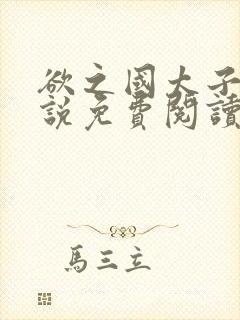 欲之國大子
說免費閱讀
馬三立